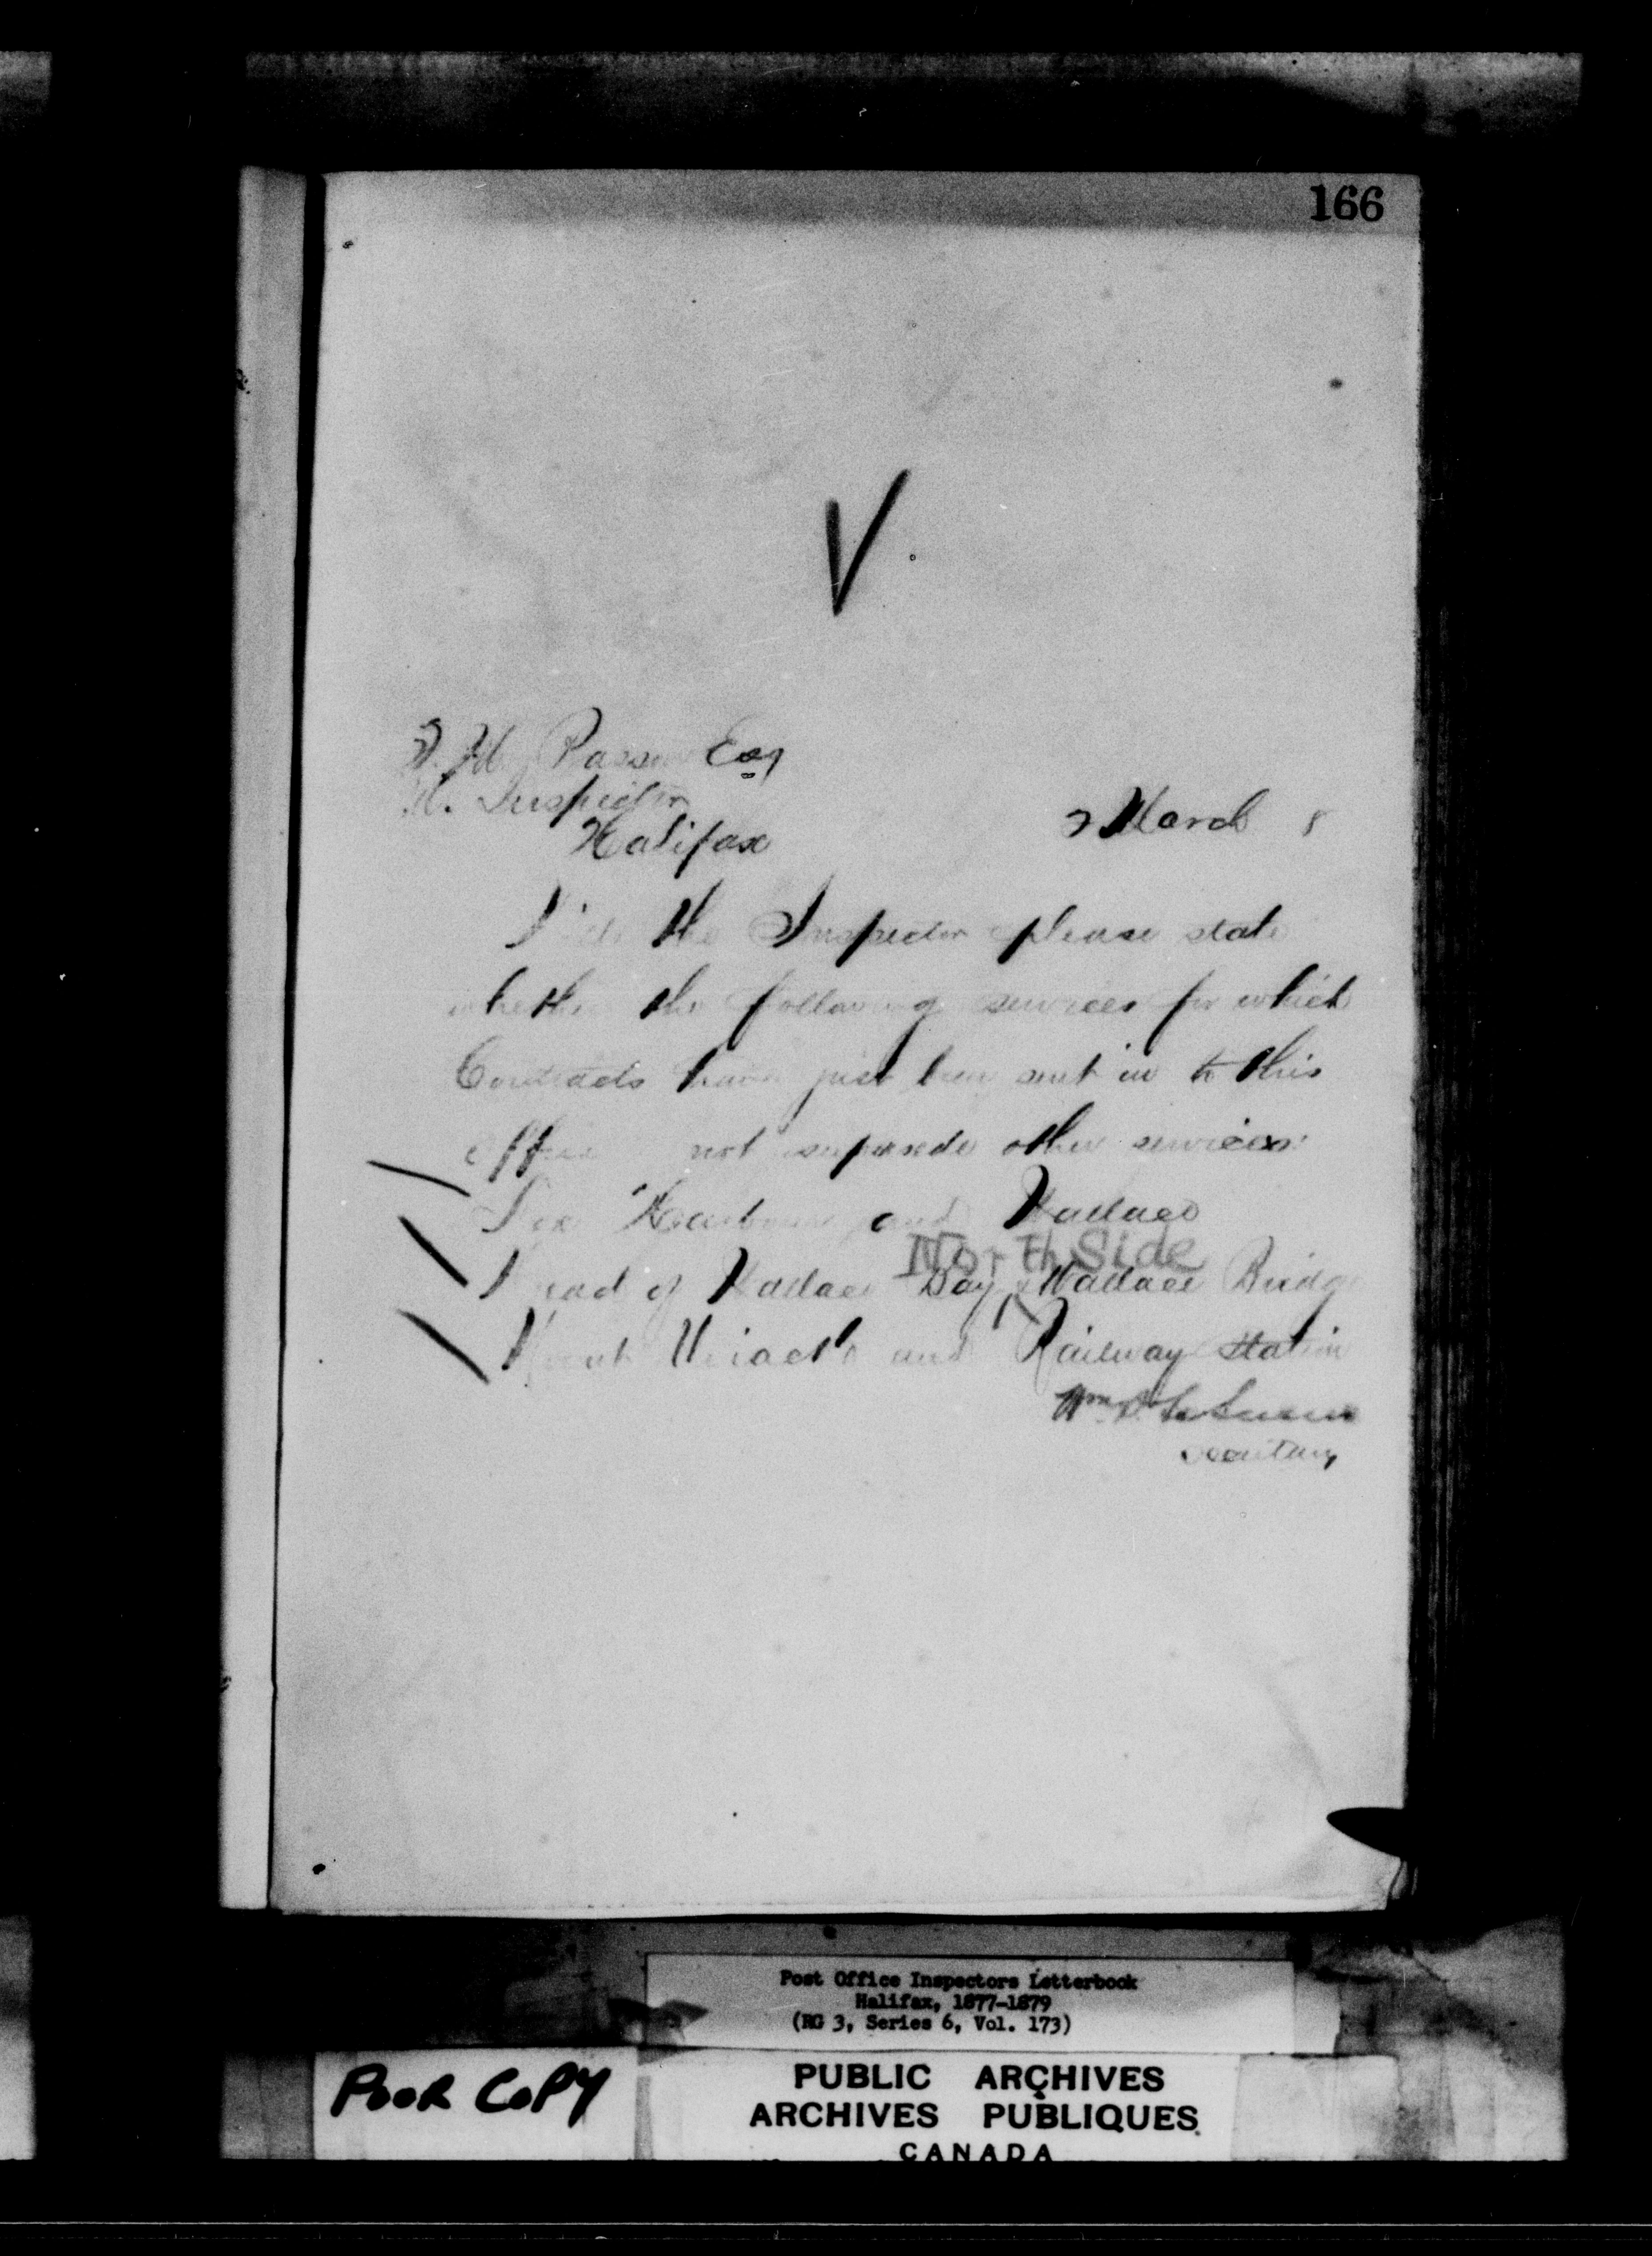 166
V.
Esq
Inspector
Halifax
March 8
the Inspector please state
whether the following services for which
Contracts have just been sent in to this
office not supersede other services:
and Wallace
North Side
Head of Wallace Bay & Wallace Bridge
Mount Uniacke and Railway Station
Secretary
Post Office Inspectors Letterbook
Halifax, 1877-1879
(RG 3, Series 6, Vol. 173)
POOR COPY
PUBLIC ARCHIVES
ARCHIVES PUBLIQUES
CANADA